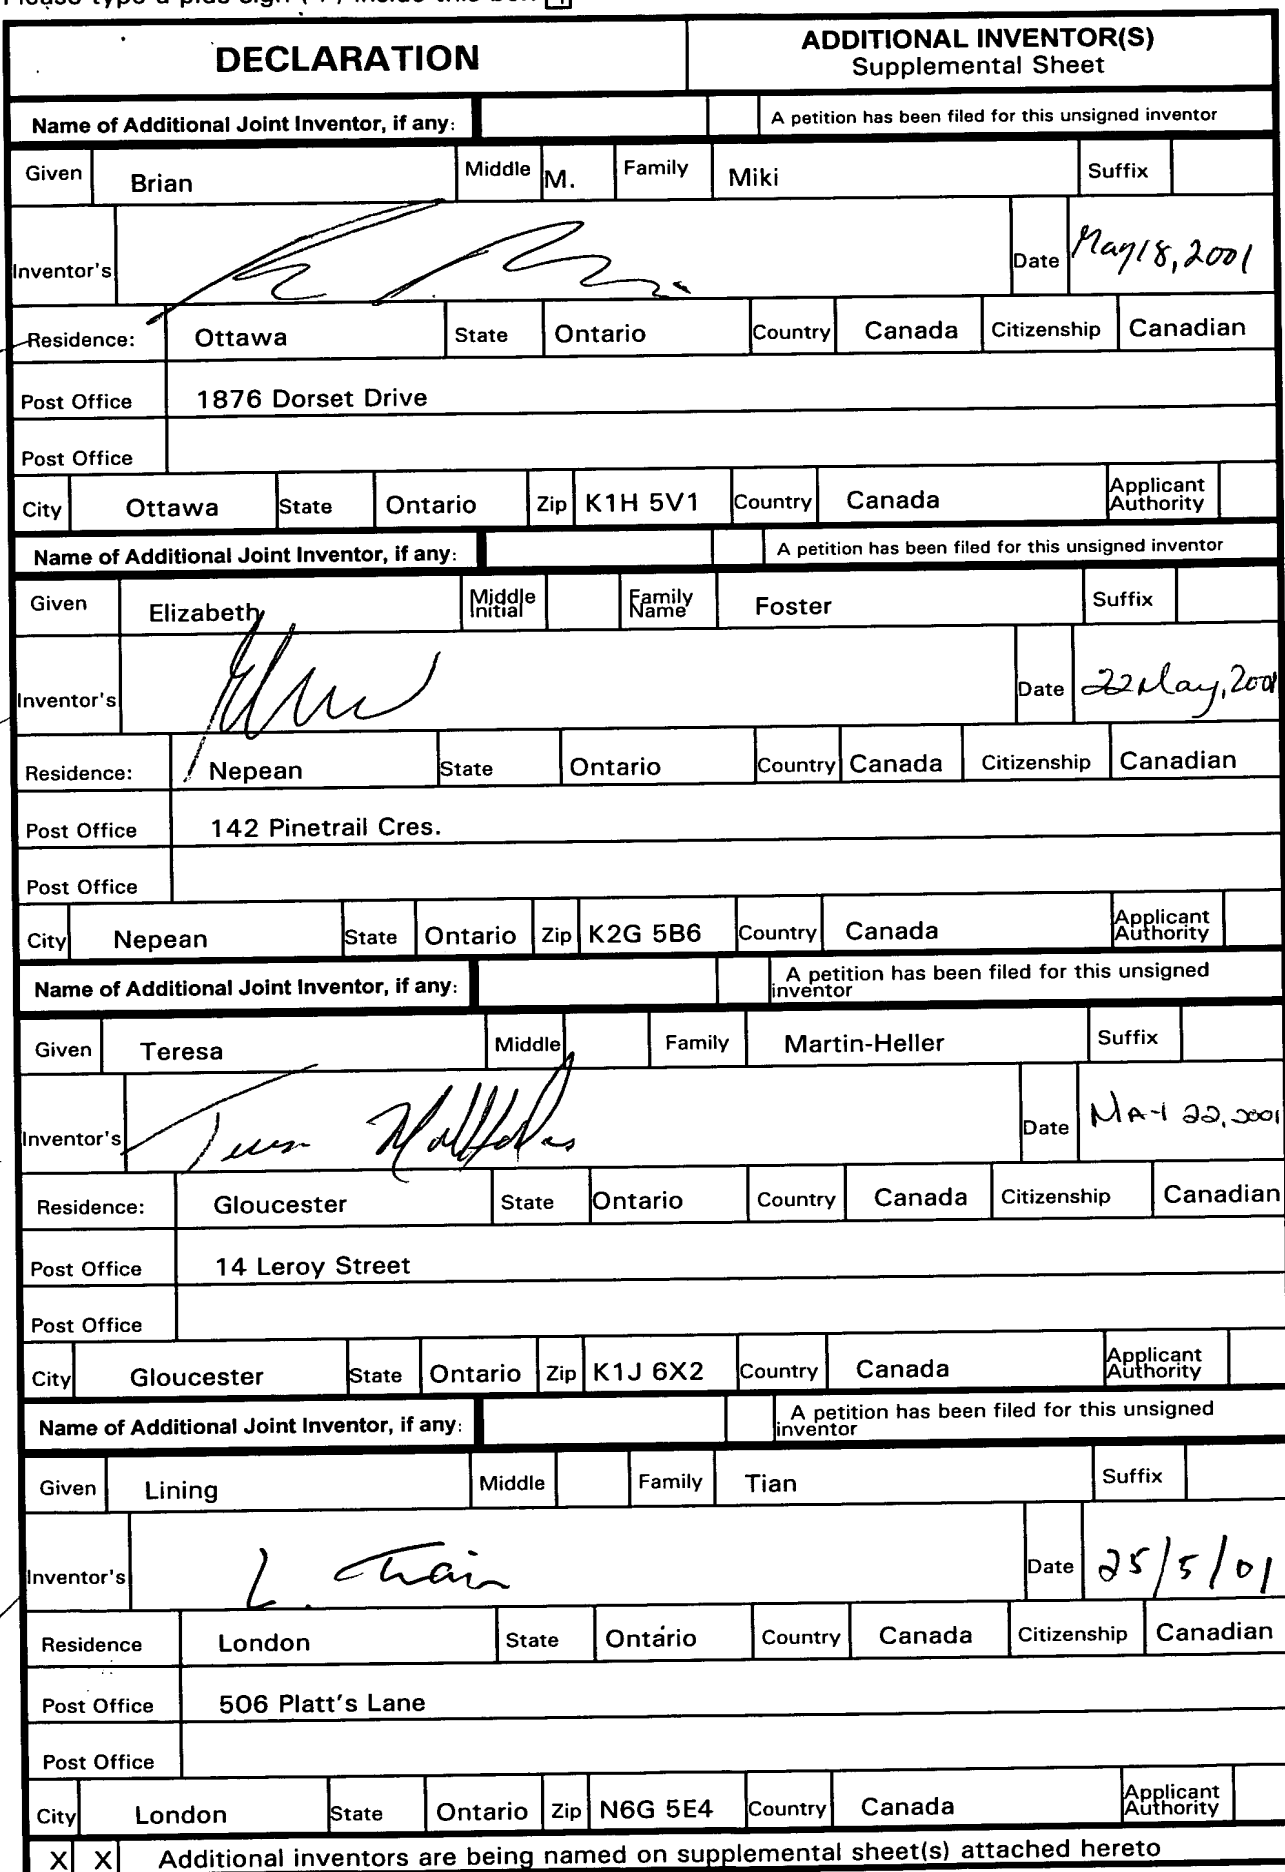 DECLARATION
ADDITIONAL INVENTOR(S)
Supplemental Sheet
Name of Additional Joint Inventor, if any: A petition has been filed for this unsigned inventor
Given Brian Middle M. Family Miki Suffix
Inventor's Date May 18, 2001
Residence: Ottawa State Ontario Country Canada Citizenship Canadian
Post Office 1876 Dorset Drive
Post Office
City Ottawa State Ontario Zip K1H 5V1 Country Canada Applicant Authority
Name of Additional Joint Inventor, if any: A petition has been filed for this unsigned inventor
Given Elizabeth Middle Initial Family Name Foster Suffix
Inventor's Date 22 May, 2001
Residence: Nepean State Ontario Country Canada Citizenship Canadian
Post Office 142 Pinetrail Cres.
Post Office
City Nepean State Ontario Zip K2G 5B6 Country Canada Applicant Authority
Name of Additional Joint Inventor, if any: A petition has been filed for this unsigned
inventor
Given Teresa Middle Family Martin-Heller Suffix
Inventor's Date MAY 22, 2001
Residence: Gloucester State Ontario Country Canada Citizenship Canadian
Post Office 14 Leroy Street
Post Office
City Gloucester State Ontario Zip K1J 6X2 Country Canada Applicant Authority
Name of Additional Joint Inventor, if any: A petition has been filed for this unsigned
inventor
Given Lining Middle Family Tian Suffix
Inventor's Date 25/5/01
Residence London State Ontario Country Canada Citizenship Canadian
Post Office 506 Platt's Lane
Post Office
City London State Ontario Zip N6G 5E4 Country Canada Applicant Authority
X X Additional inventors are being named on supplemental sheet(s) attached hereto